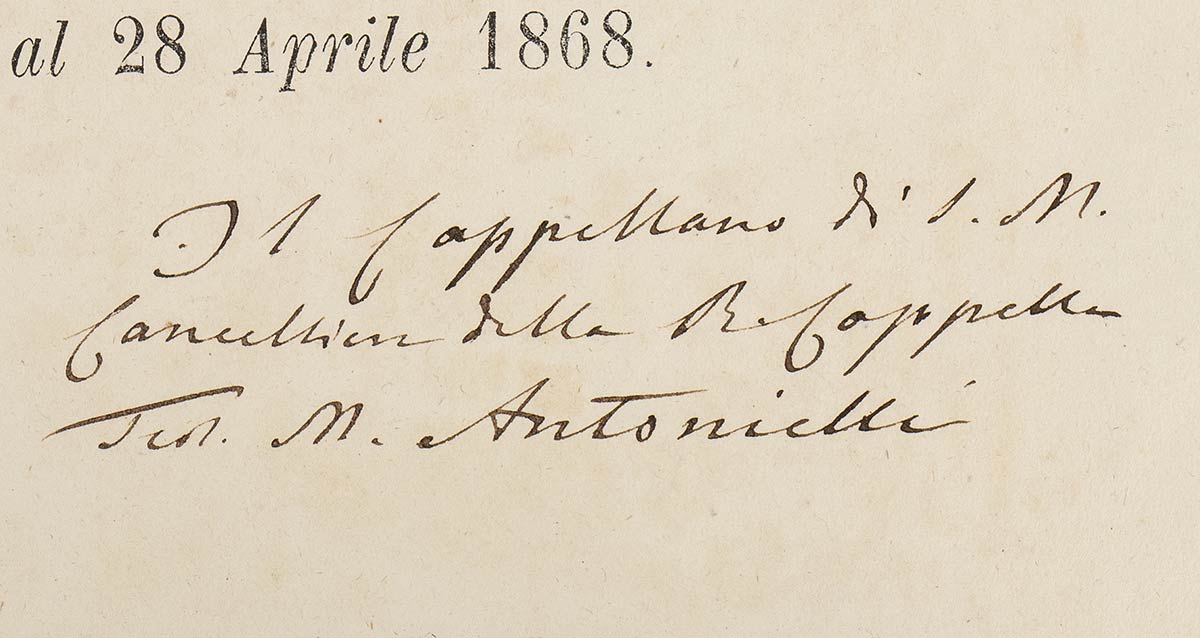 al 28 Aprile 1868.
Il Cappellano di S. M.
Cancelliere della R. Cappella
Teol. M. Antonielli